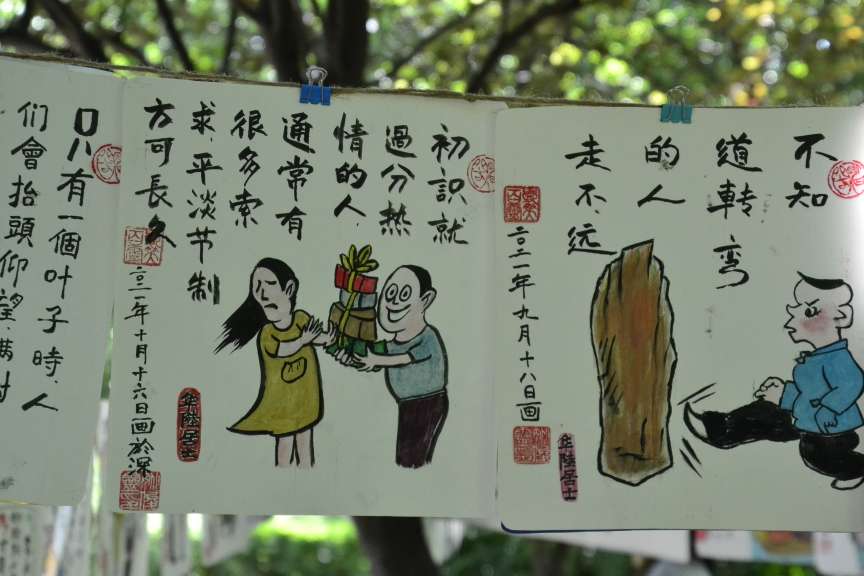 只有一個叶子時，人
们會抬頭仰望，满树
初識就
過分熱
情的人，
通常有
很多索
求，平淡节制
方可長久
二〇二一年十月十六日画於深
华陸居士
不知
道轉弯
的人
走不远
二〇二一年九月十八日画
华陸居士